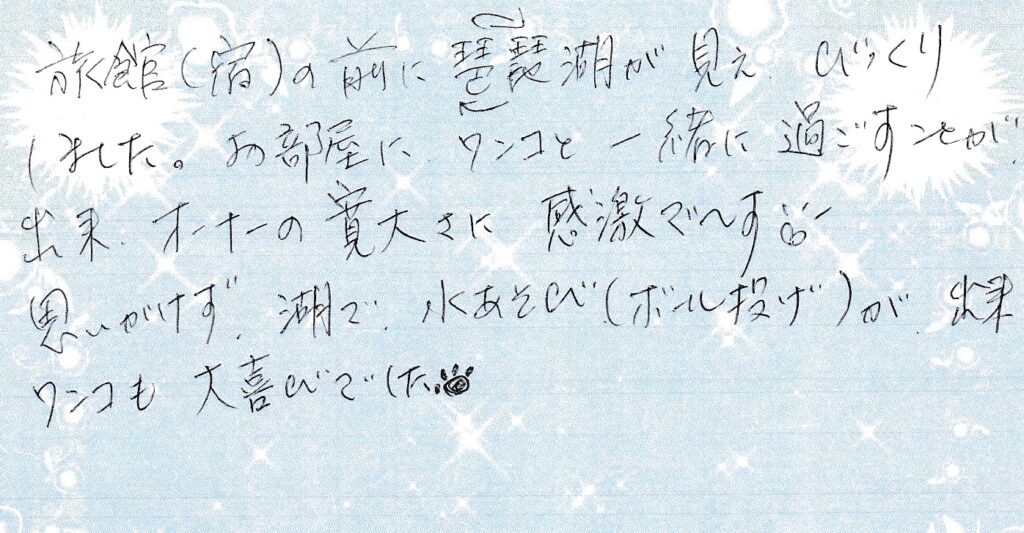 旅館(宿)の前に琶琵湖が見え、びっくり
しました。お部屋に、ワンコと一緒に過ごすことが、
出来、オーナーの寛大さに感激で〜す
思いがけず、湖で、水あそび(ボール投げ)が、出来
ワンコも大喜びでした。